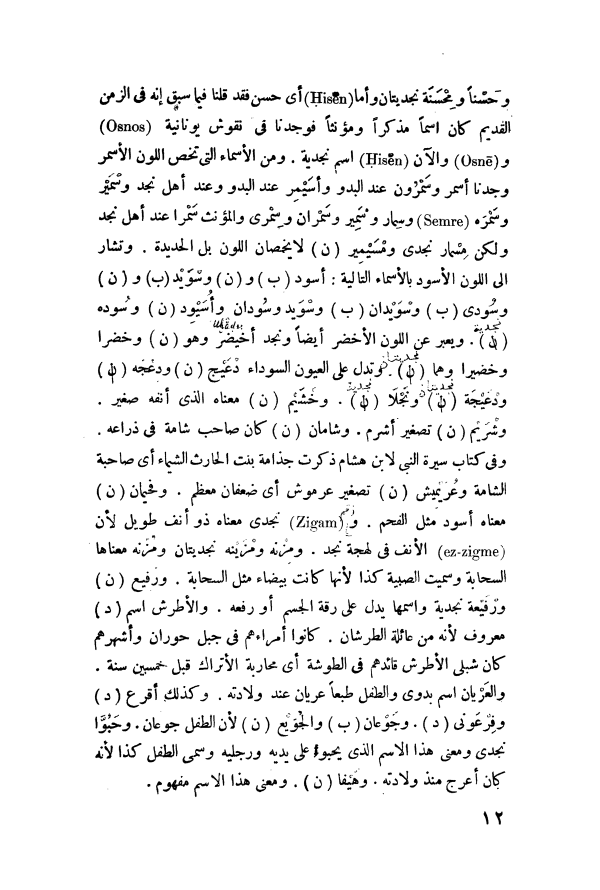 وحَسْناً ومِحْسَنَة نجديتان وأما (Ḥisēn) أى حسن فقد قلنا فيما سبق إنه فى الزمن
القديم كان اسماً مذكراً ومؤنثاً فوجدنا فى نقوش يونانية (Osnos)
و (Osnē) والآن (Ḥisēn) اسم نجدية . ومن الأسماء التى تخص اللون الأسمر
وجدنا أسمر وسَمْرُون عند البدو وأسَيْمِر عند البدو وعند أهل نجد وسْمَيْر
وسَمْرَه (Semre) وسمار وسْمَير وسَمْران وسِمْرى والمؤنث سَمْرا عند أهل نجد
ولكن مِسْمار نجدى ومْسَيْمِير (ن) لايخصان اللون بل الحديدة . وتشار
الى اللون الأسود بالأسماء التالية : أسود (ب) و (ن) وسْوَيْد (ب) و (ن)
وسُودى (ب) وسْوَيْدان (ب) وسْوَيد وسُودان وأُسَيْوِد (ن) وسُوده
(ن) نجدية . ويعبر عن اللون الأخضر أيضاً ونجد أخَيْضَر وهو (ن) وخضرا
وخضيرا وهما (ن) نجديتان وتدل على العيون السوداء دْعَيْج (ن) ودعْجه (ن)
ودْعَيْجَة (ن) نجديتان ونَجْلَا (ن) نجدية . وخُشَيْم (ن) معناه الذى أنفه صغير .
وشْرَيْم (ن) تصغير أشرم . وشامان (ن) كان صاحب شامة فى ذراعه .
وفى كتاب سيرة النبى لابن هشام ذكرت جذامة بنت الحارث الشيماء أى صاحبة
الشامة وعُرَيْمِيش (ن) تصغير عرموش أى ضعفان معظم . وفحيمان (ن)
معناه أسود مثل الفحم . و (Zigam) نجدى معناه ذو أنف طويل لأن
(ez-zigme) الأنف فى لهجة نجد . ومزنه ومْزَيْنه نجديتان ومزْنه معناها
السحابة وسميت الصبية كذا لأنها كانت بيضاء مثل السحابة . ورفيع (ن)
ورْفَيْعة نجدية واسمها يدل على رقة الجسم أو رفعه . والأطرش اسم (د)
معروف لأنه من عائلة الطرشان . كانوا أمراءهم فى جبل حوران وأشهرهم
كان شبلى الأطرش قائدهم فى الطوشة أى محاربة الأتراك قبل خمسين سنة .
والعَرْيان اسم بدوى والطفل طبعاً عريان عند ولادته . وكذلك أقرع (د)
وقِرْعونى (د) . وجَوْعان (ب) والجْوَيْع (ن) لأن الطفل جوعان . وحَبُوَّا
نجدى ومعنى هذا الاسم الذى يحبو على يديه ورجليه وسمى الطفل كذا لأنه
كان أعرج منذ ولادته . وهَيْفا (ن) . ومعنى هذا الاسم مفهوم .
١٢